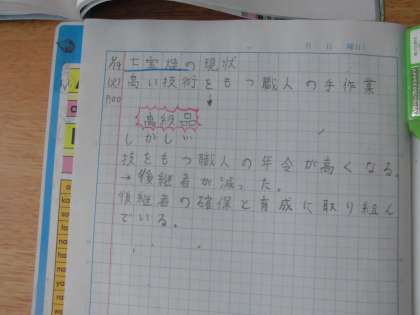 月 日 曜日
七宝焼の現状
高い技術をもつ職人の手作業
↓
高級品
しかし…
技をもつ職人の年令が高くなる。
→後継者が減った。
後継者の確保と育成に取り組ん
でいる。
sa
ta
na
ha
ma
ya
ra
wa